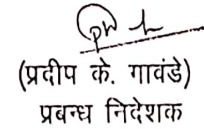 (प्रदीप के. गावंडे)
प्रबन्ध निदेशक